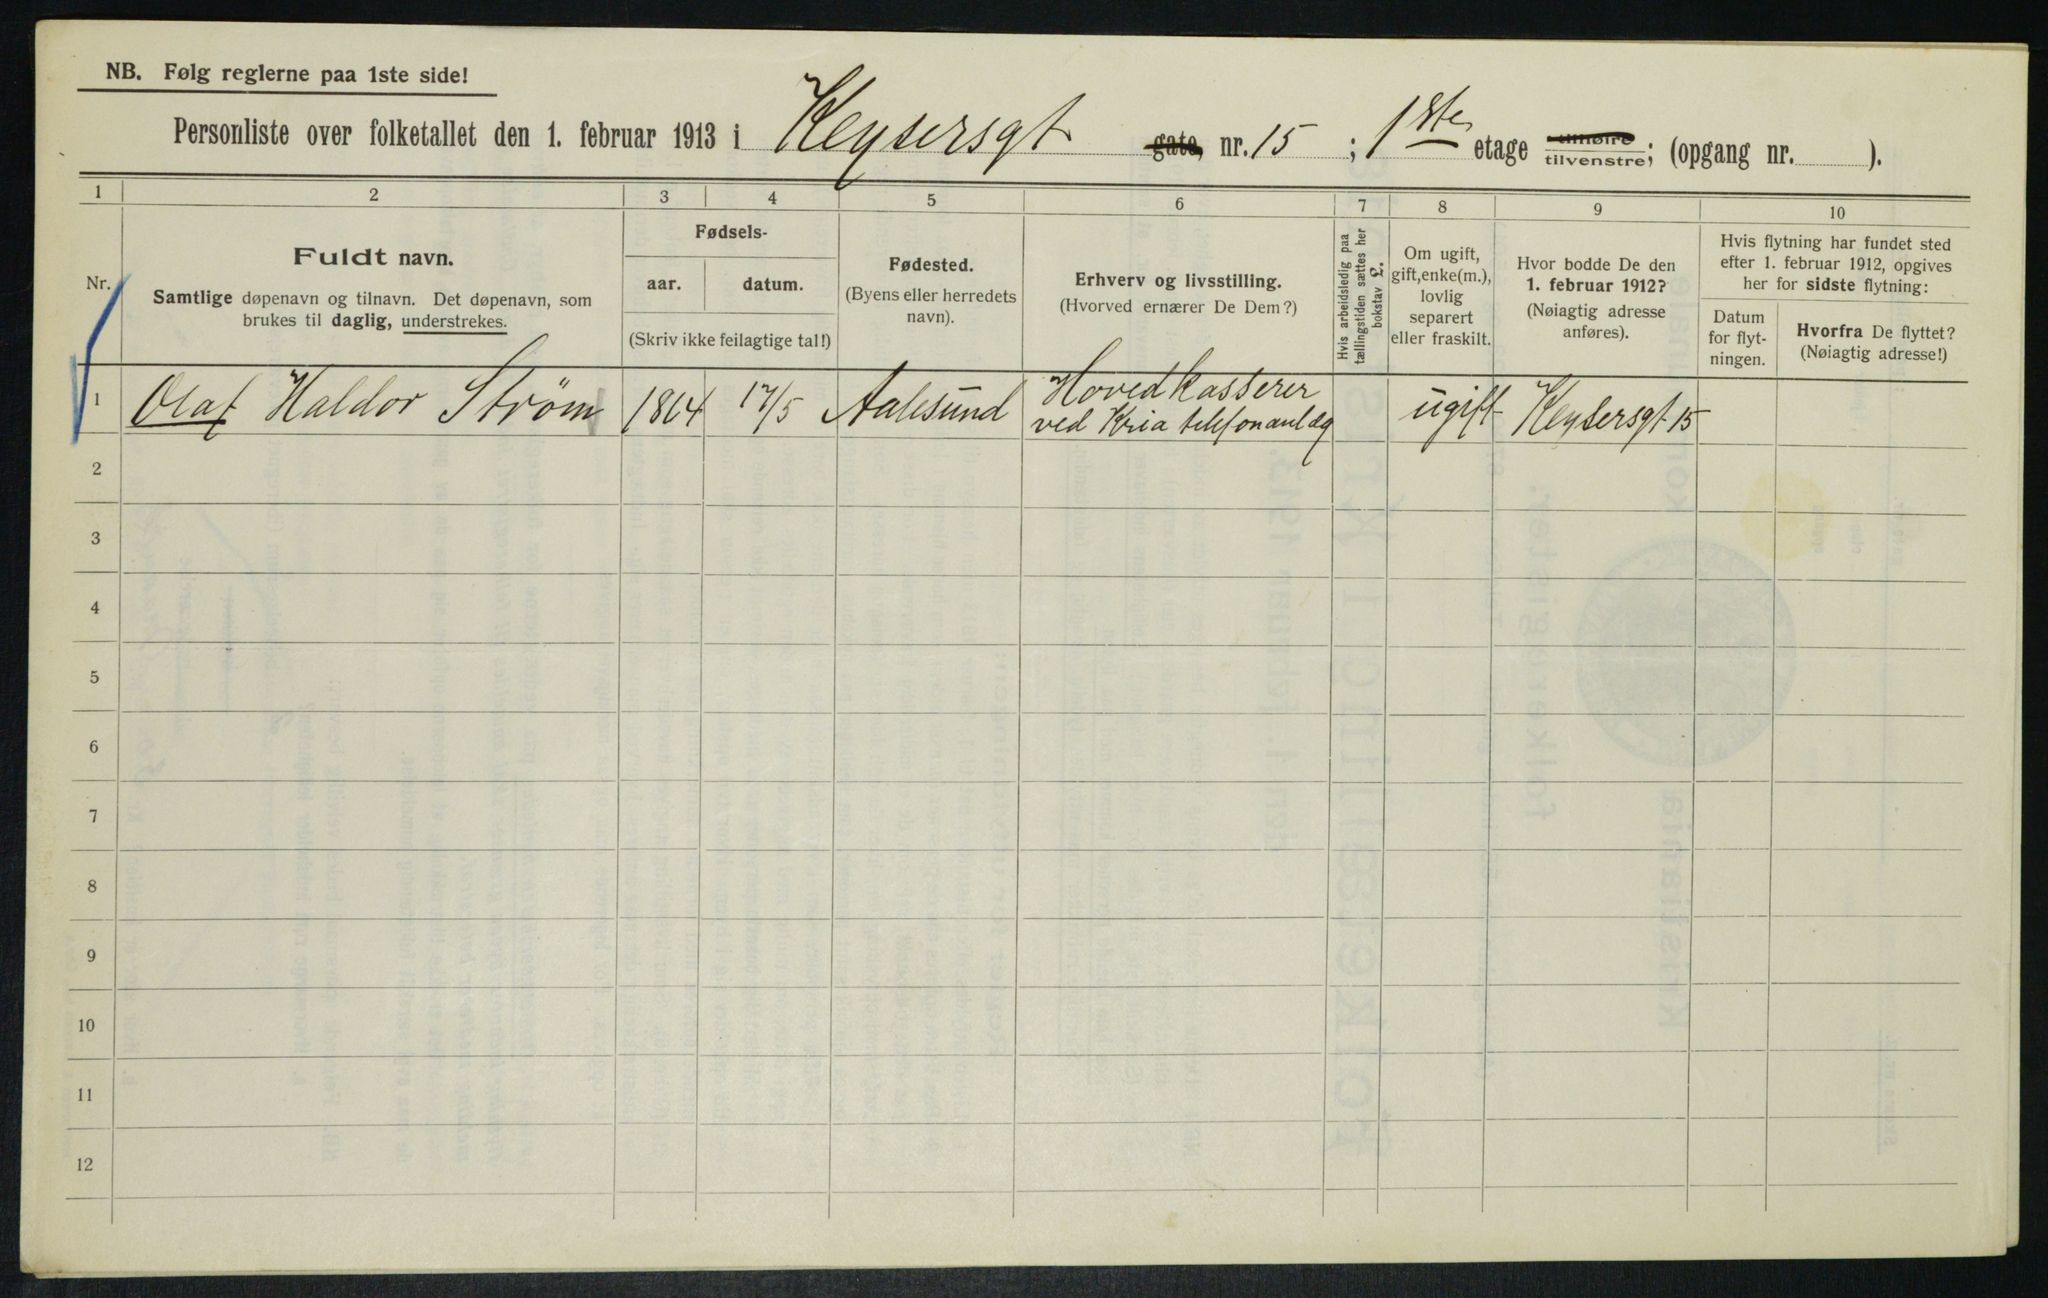 NB. Følg reglerne paa 1ste side!
Personliste over folketallet den 1. februar 1913 i Keysersgt gate, nr. 15 ; 1ste etage tilhøire tilvenstre; (opgang nr. ).
1 2 3 4 5 6 7 8 9 10
Nr.
Fuldt navn.
Samtlige døpenavn og tilnavn. Det døpenavn, som
brukes til daglig, understrekes.
Fødsels-
aar. datum.
(Skriv ikke feilagtige tal!)
Fødested.
(Byens eller herredets
navn).
Erhverv og livsstilling.
(Hvorved ernærer De Dem?)
Hvis arbeidsledig paa
tællingstiden sættes her
bokstav L.
Om ugift,
gift, enke(m.),
lovlig
separert
eller fraskilt.
Hvor bodde De den
1. februar 1912?
(Nøiagtig adresse
anføres).
Hvis flytning har fundet sted
efter 1. februar 1912, opgives
her for sidste flytning:
Datum
for flyt-
ningen.
Hvorfra De flyttet?
(Nøiagtig adresse!)
1 Olaf Haldor Strøm 1864 17/5 Aalesund Hovedkasserer
ved Kria telefonanlæg ugift Keysersgt 15
2
3
4
5
6
7
8
9
10
11
12